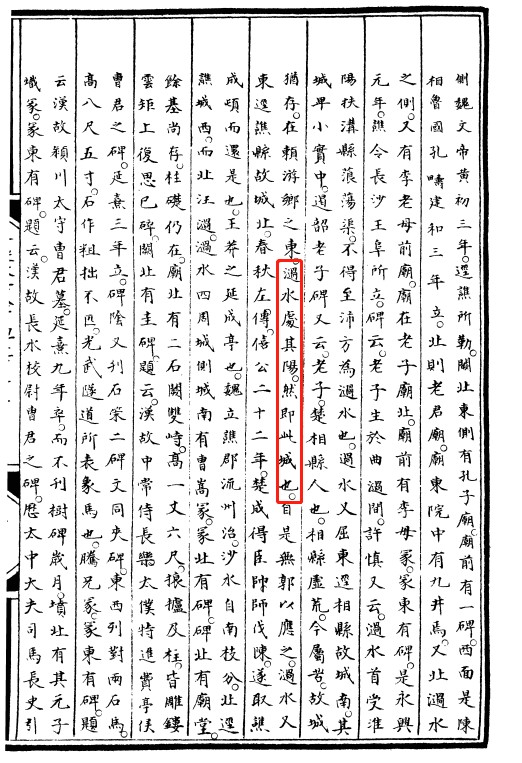 側魏文帝黃初三年。逕譙所勒。闕北東側有孔子廟。廟前有一碑。西面是陳
相魯國孔疇建和三年立。北則老君廟。廟東院中有九井焉。又北過水
之側。又有李老母前廟。廟在老子廟北。廟前有李母冢。冢東有碑。是永興
元年。譙令長沙王阜所立。碑云。老子生於曲過間。許慎又云。過水首受淮
陽扶溝縣蒗蕩渠。不得至沛方為過水也。過水又屈東逕相縣故城南。其
城卑小實中。邊韶老子碑又云。老子。楚相縣人也。相縣虛荒。今屬苦。故城
猶存。在賴游鄉之東。過水處其陽。然即此城也。自是無郭以應之。過水又
東逕譙縣故城北。春秋左傳僖公二十二年。楚成得臣帥師伐陳。遂取譙
成頓而還是也。王莽之延成亭也。魏立譙郡。沇州治。沙水自南枝分。北逕
譙城西。而北注過。過水四周城側。城南有曹嵩冢。冢北有碑。碑北有廟堂。
餘基尚存。柱礎仍在。廟北有二石闕雙峙。高一丈六尺。榱櫨及柱。皆雕鏤
雲矩上復思已碎。闕北有圭碑。題云。漢故中常侍長樂太僕特進費亭侯
曹君之碑。延熹三年立。碑陰又刊石策二碑文同夾碑。東西列對兩石馬。
高八尺五寸。石作粗拙不匹。光武隧道所表象馬也。騰兄冢。冢東有碑。題
云漢故潁川太守曹君墓。延熹九年卒。而不刊樹碑歲月。墳北有其元子
熾冢。冢東有碑。題云。漢故長水校尉曹君之碑。歷太中大夫司馬長史引